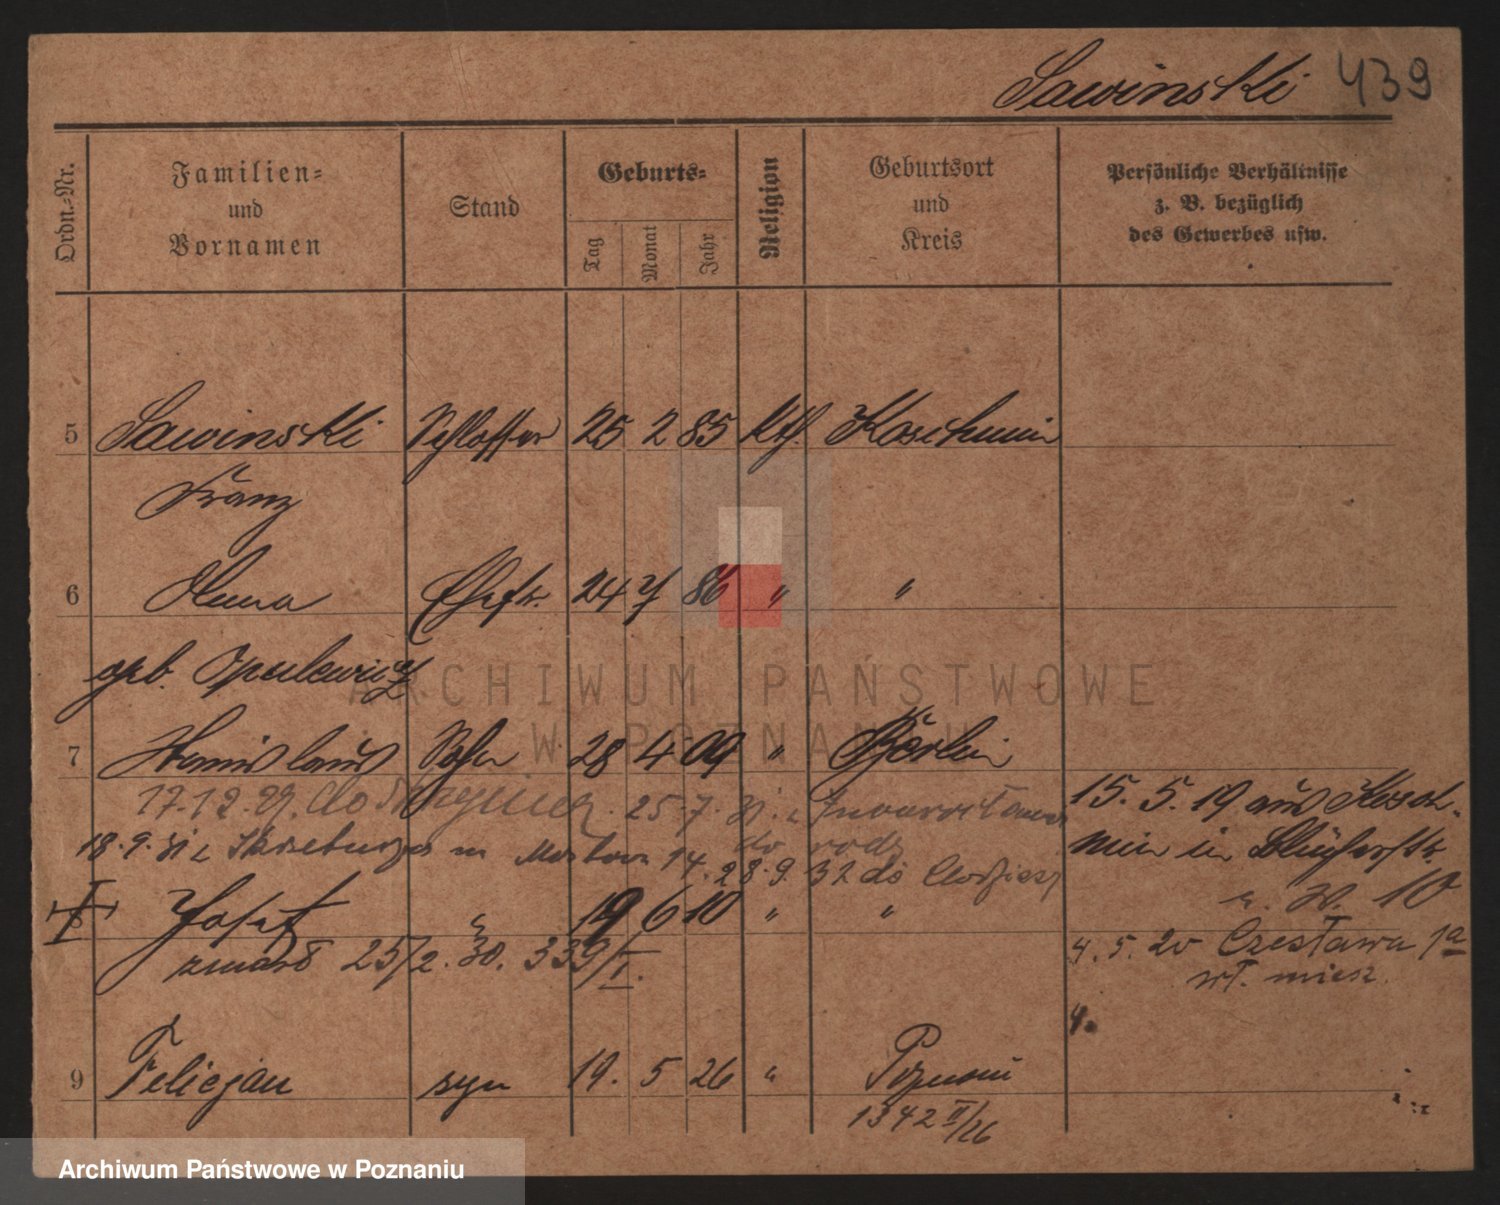 Sawinski 439
Ordn.-Nr.
Familien-
und
Vornamen
Stand
Geburts-
Tag
Monat
Jahr
Religion
Geburtsort
und
Kreis
Persönliche Verhältnisse
z. B. bezüglich
des Gewerbes usw.
5 Sawinski Schlosser 25 2 85 kth. Koschmin
Franz
6 Anna Ehefr. 24 7 86 " "
geb. Opulewicz
7 Stanislaus Sohn 28 4 09 " Berlin
17.12.29. do 25.7.31. z Inowrocławia
15.5.19 aus Kosch-
18.9.31 z m Mostowa 14. do rodz
min in Blücherstr.
28.9.32 do
n. W. 10
8 Josef " 19 6 10 " "
zmarł 25/2.30. 339/I.
4.5.20 Czesława 1a
wł. miesz.
4.
9 Felicjan syn 19. 5 26 " Poznań
1342 II/26
ARCHIWUM PAŃSTWOWE
W POZNANIU
Archiwum Państwowe w Poznaniu